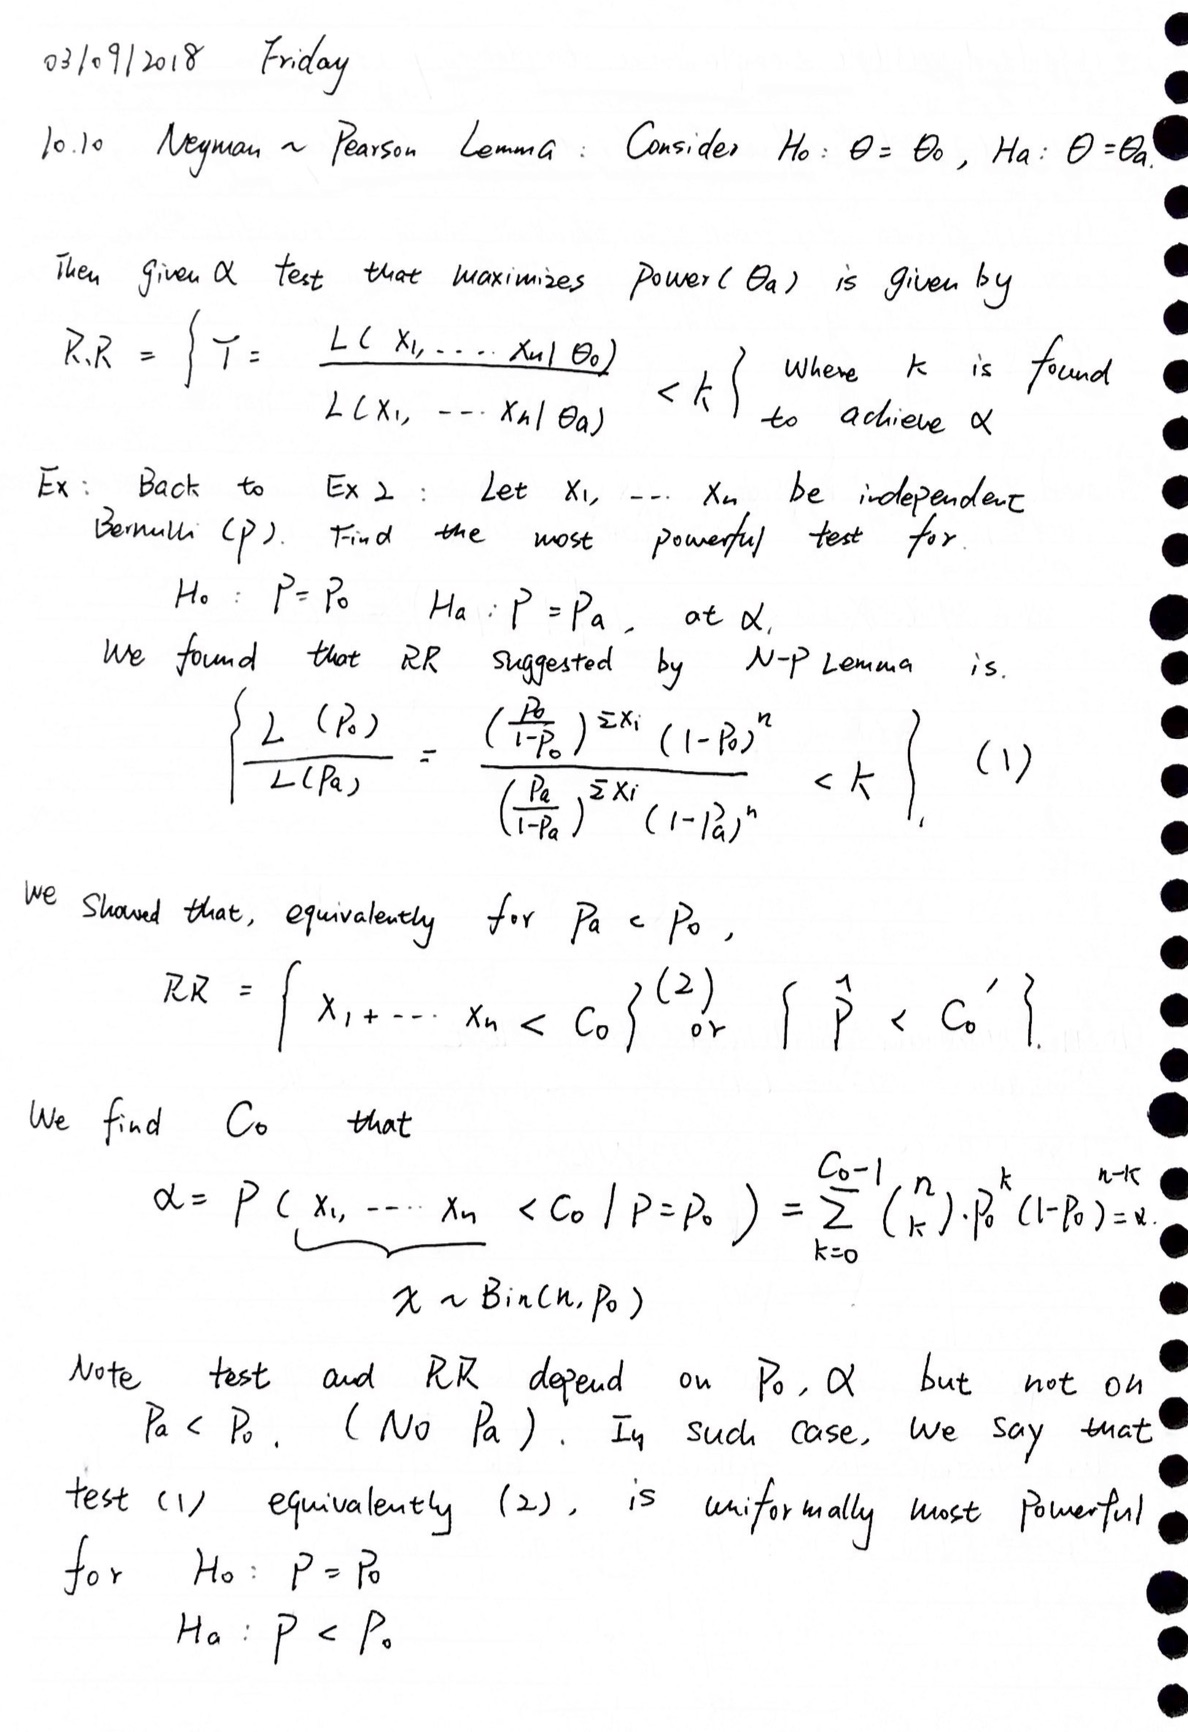 03/09/2018 Friday
10.10 Neyman ~ Pearson Lemma : Consider H₀ : θ = θ₀ , Ha : θ = θa.
Then given α test that maximizes power( θa ) is given by
R.R = { T = L( X₁, ..... Xn | θ₀) / L(X₁, --- Xn | θa) < k } where k is found
to achieve α
Ex : Back to Ex 2 : Let X₁, --- Xn be independent
Bernulli (p). Find the most powerful test for.
H₀ : P = P₀ Ha : P = Pa , at α.
We found that RR suggested by N-P Lemma is.
{ L (P₀) / L(Pa) = (P₀/(1-P₀))^ΣXi (1-P₀)^n / (Pa/(1-Pa))^ΣXi (1-Pa)^n < k }, (1)
We showed that, equivalently for Pa < P₀ ,
RR = { X₁ + --- Xn < C₀ } (2) or { p̂ < C₀′ }.
We find C₀ that
α = P ( X₁, ---- Xn < C₀ / P = P₀ ) = Σ_{k=0}^{C₀-1} (n k) · P₀^k (1-P₀)^{n-k} = α.
X ~ Bin(n, P₀)
Note test and RR depend on P₀ , α but not on
Pa < P₀ . ( No Pa ) . In such case, we say that
test (1) equivalently (2) , is uniformally most powerful
for H₀ : P = P₀
Ha : P < P₀